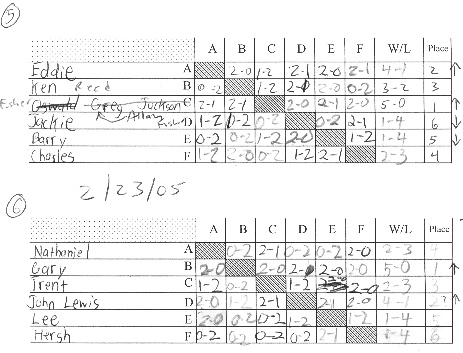 5
A B C D E F W/L Place
Eddie A 2-0 1-2 2-1 2-0 2-1 4-1 2 ↑
Ken Reed B 0-2 1-2 2-0 2-0 0-2 3-2 3
C 2-1 2-1 2-0 2-1 2-0 5-0 1 ↑
Jackie D 1-2 0-2 0-2 0-2 2-1 1-4 6 ↓
Barry E 0-2 0-2 1-2 2-0 1-2 1-4 5 ↓
Charles F 1-2 2-0 0-2 1-2 2-1 2-3 4
2/23/05
6
A B C D E F W/L Place
Nathaniel A 0-2 2-1 0-2 0-2 2-0 2-3 4
Gary B 2-0 2-0 2-0 2-0 2-0 5-0 1 ↑
Trent C 1-2 0-2 1-2 2-0 2-3 3
John Lewis D 2-0 1-2 2-1 2-1 2-0 4-1 2 ↑
Lee E 2-0 0-2 0-2 1-2 1-2 1-4 5
Hersh F 0-2 0-2 0-2 0-2 2-1 1-4 6